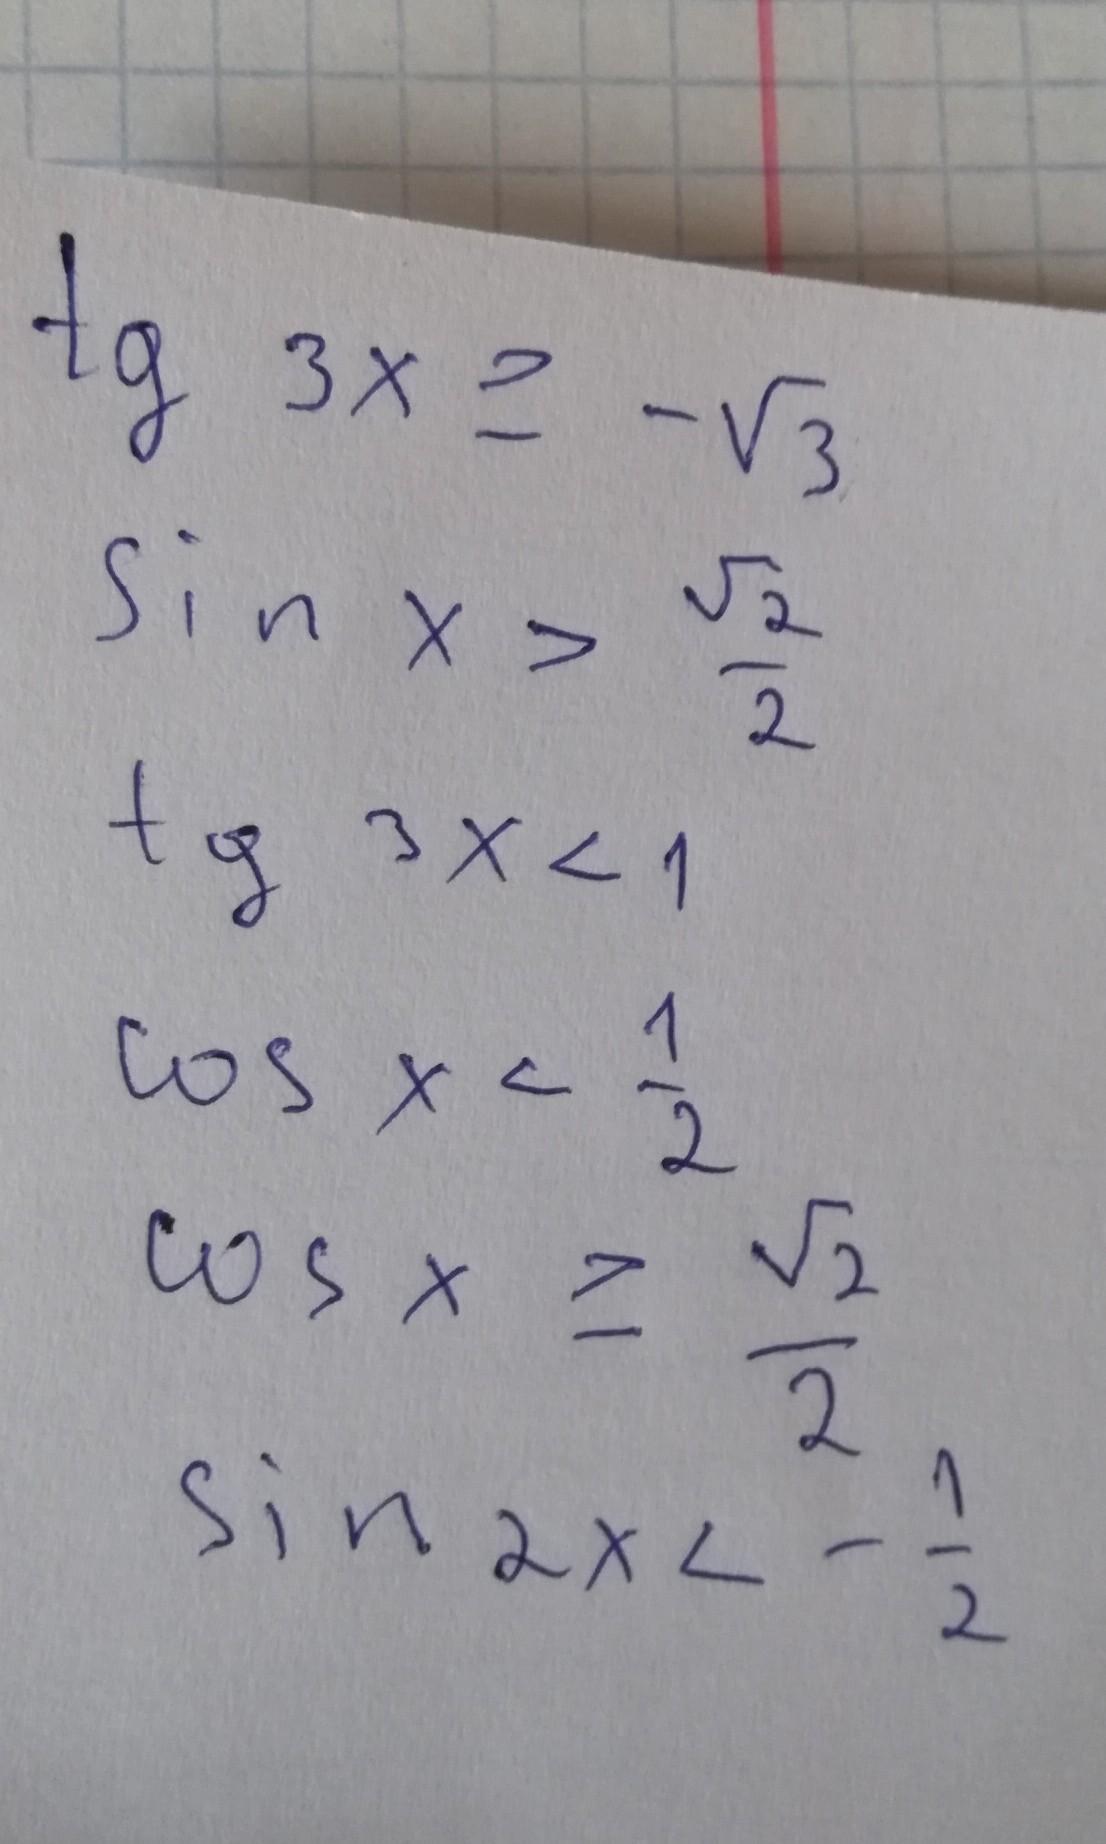 tg 3x ≥ -√3
sin x > √2/2
tg 3x < 1
cos x < 1/2
cos x ≥ √2/2
sin 2x < - 1/2